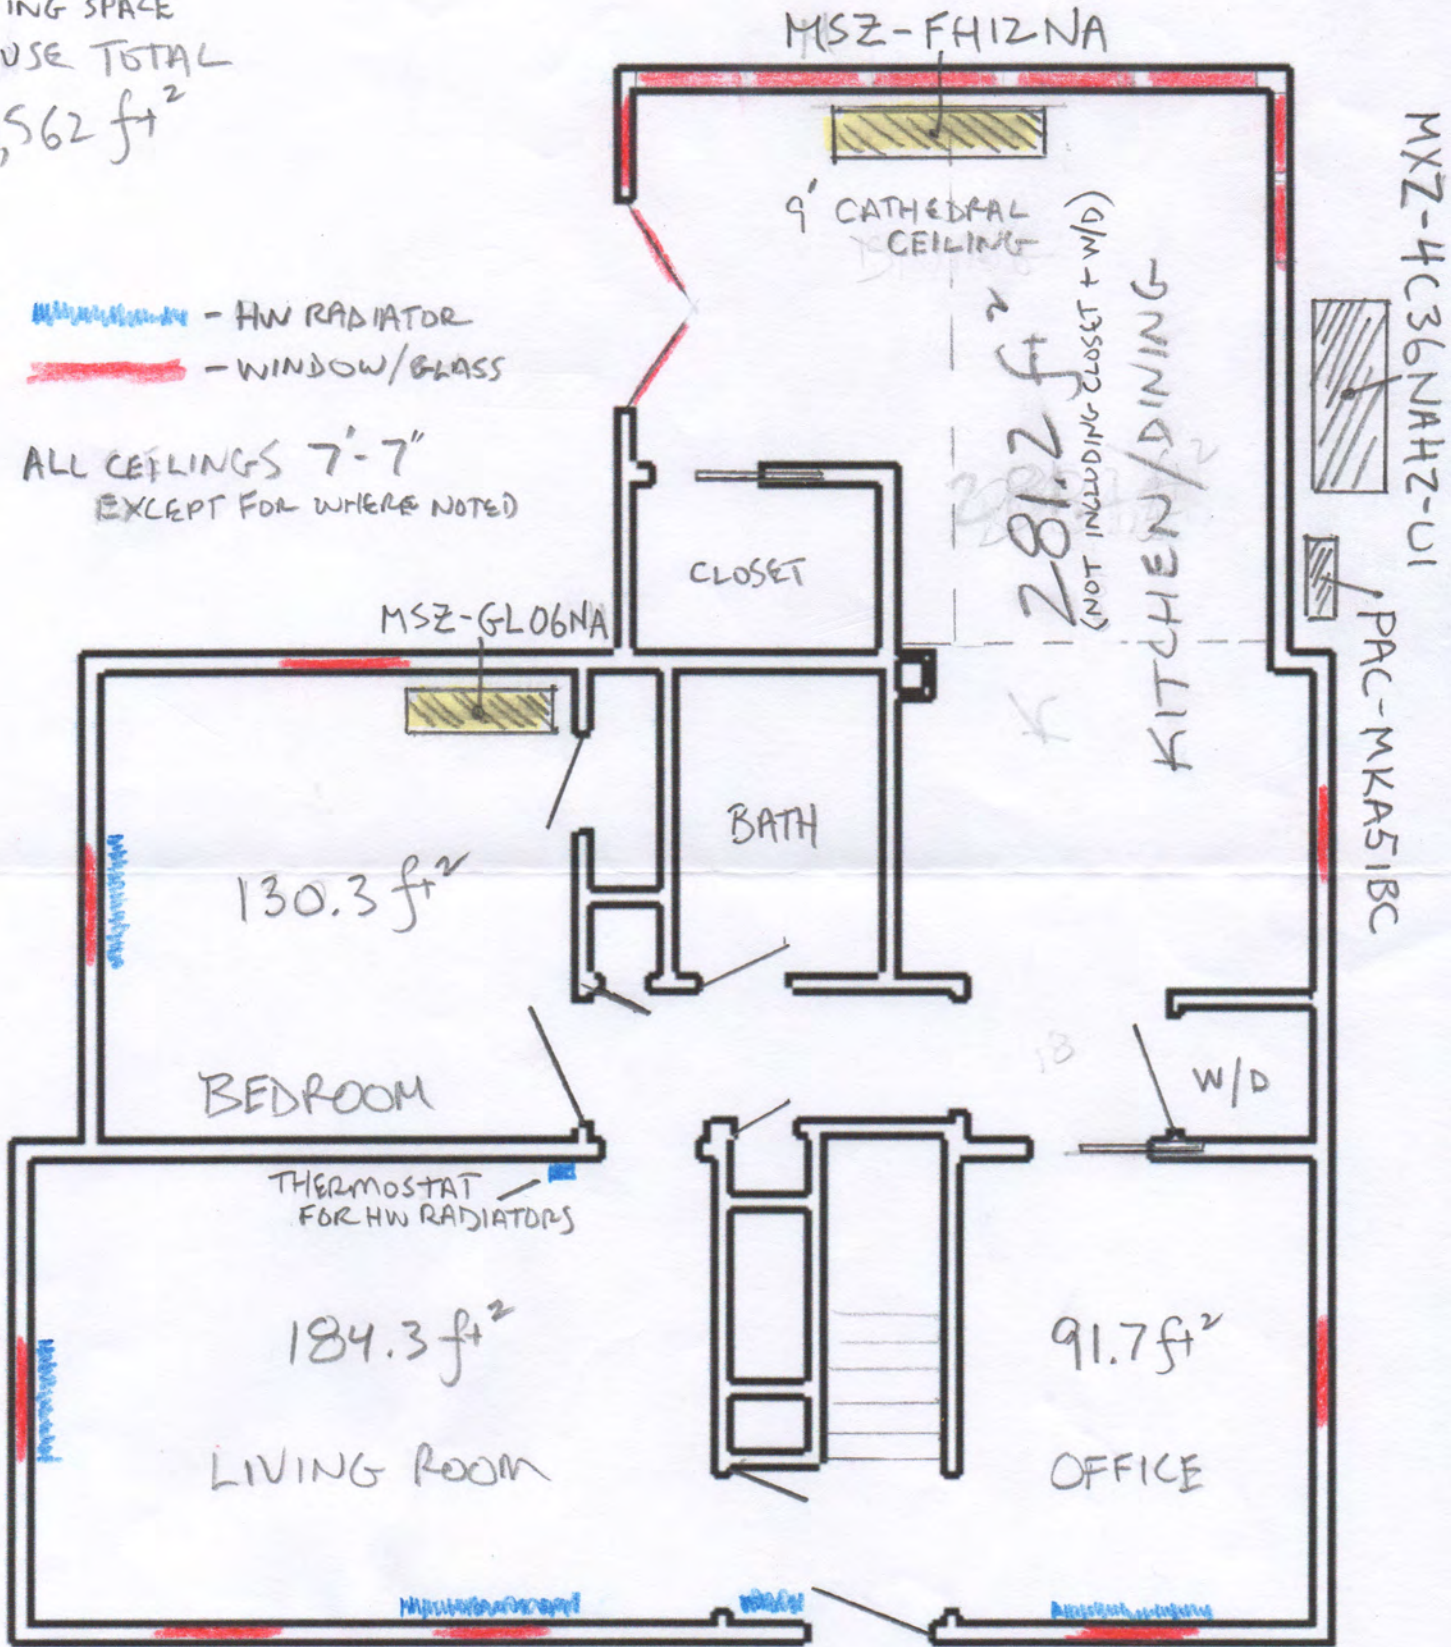 ING SPACE
USE TOTAL
,562 ft²
MSZ-FH12NA
9' CATHEDRAL
CEILING
- HW RADIATOR
- WINDOW/GLASS
ALL CEILINGS 7'-7"
EXCEPT FOR WHERE NOTED
281.2 ft²
(NOT INCLUDING CLOSET + W/D)
KITCHEN/DINING
MXZ-4C36NAHZ-U1
PAC-MKA51BC
CLOSET
MSZ-GL06NA
BATH
130.3 ft²
BEDROOM
W/D
THERMOSTAT
FOR HW RADIATORS
184.3 ft²
LIVING ROOM
91.7 ft²
OFFICE